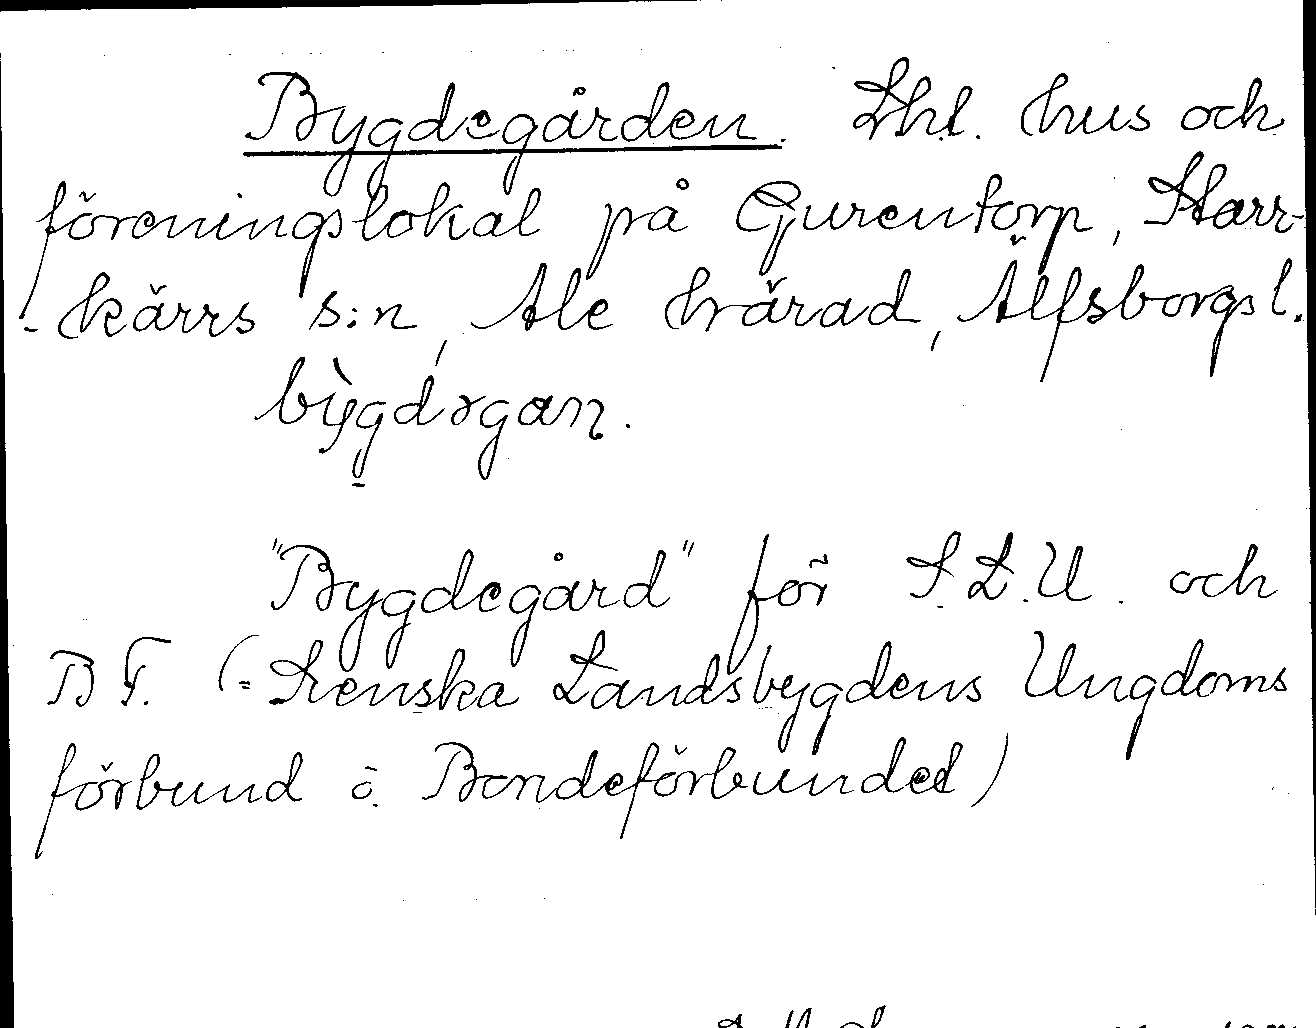 Bygdegården. Lhl. hus och
föreningslokal på Gurentorp, Starr-
- kärrs s:n, Ale härad, Älfsborgs l.
bỳgdɤgan.
"Bygdegård" för S.L.U. och
B F. (= Svenska Landsbygdens Ungdoms
förbund o. Bondeförbundet)